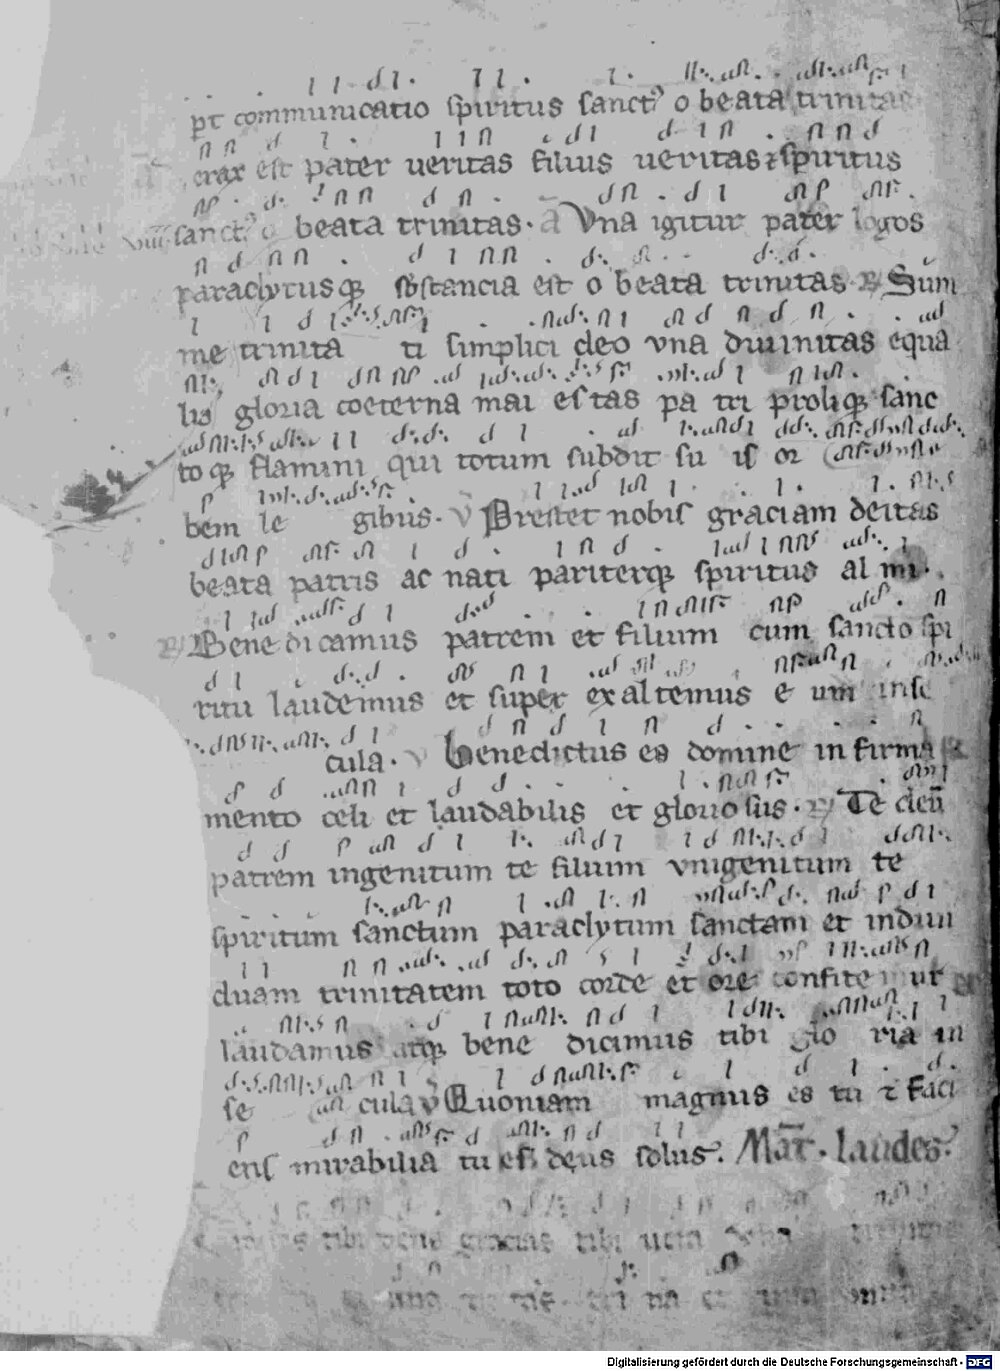 pt communicatio spiritus sanct᾽ o beata trinitas
erax est pater ueritas filius ueritas ⁊ spiritus
sanct᾽ o beata trinitas. a Vna igitur pater logos
paraclytusqꝫ sbstancia est o beata trinitas. ℟ Sum
me trinita ti simplici deo vna diuinitas equa
lis gloria coeterna mai estas pa tri proliqꝫ sanc
to qꝫ flamini qui totum subdit su is or
bem le gibus. V Prestet nobis graciam deitas
beata patris ac nati pariterqꝫ spiritus al mi.
℟ Bene dicamus patrem et filium cum sancto spi
ritu laudemus et super ex altemus e um in se
cula. V Benedictus es domine in firma
mento celi et laudabilis et gloriosus. ℟ Te deū
patrem ingenitum te filium vnigenitum te
spiritum sanctum paraclytum sanctam et indiui
duam trinitatem toto corde et ore confite mur
laudamus atqꝫ bene dicimus tibi glo ria in
se cula V Quoniam magnus es tu ⁊ faci
ens mirabilia tu es deus solus. Mat̄. laudes.
tibi deus gracias tibi